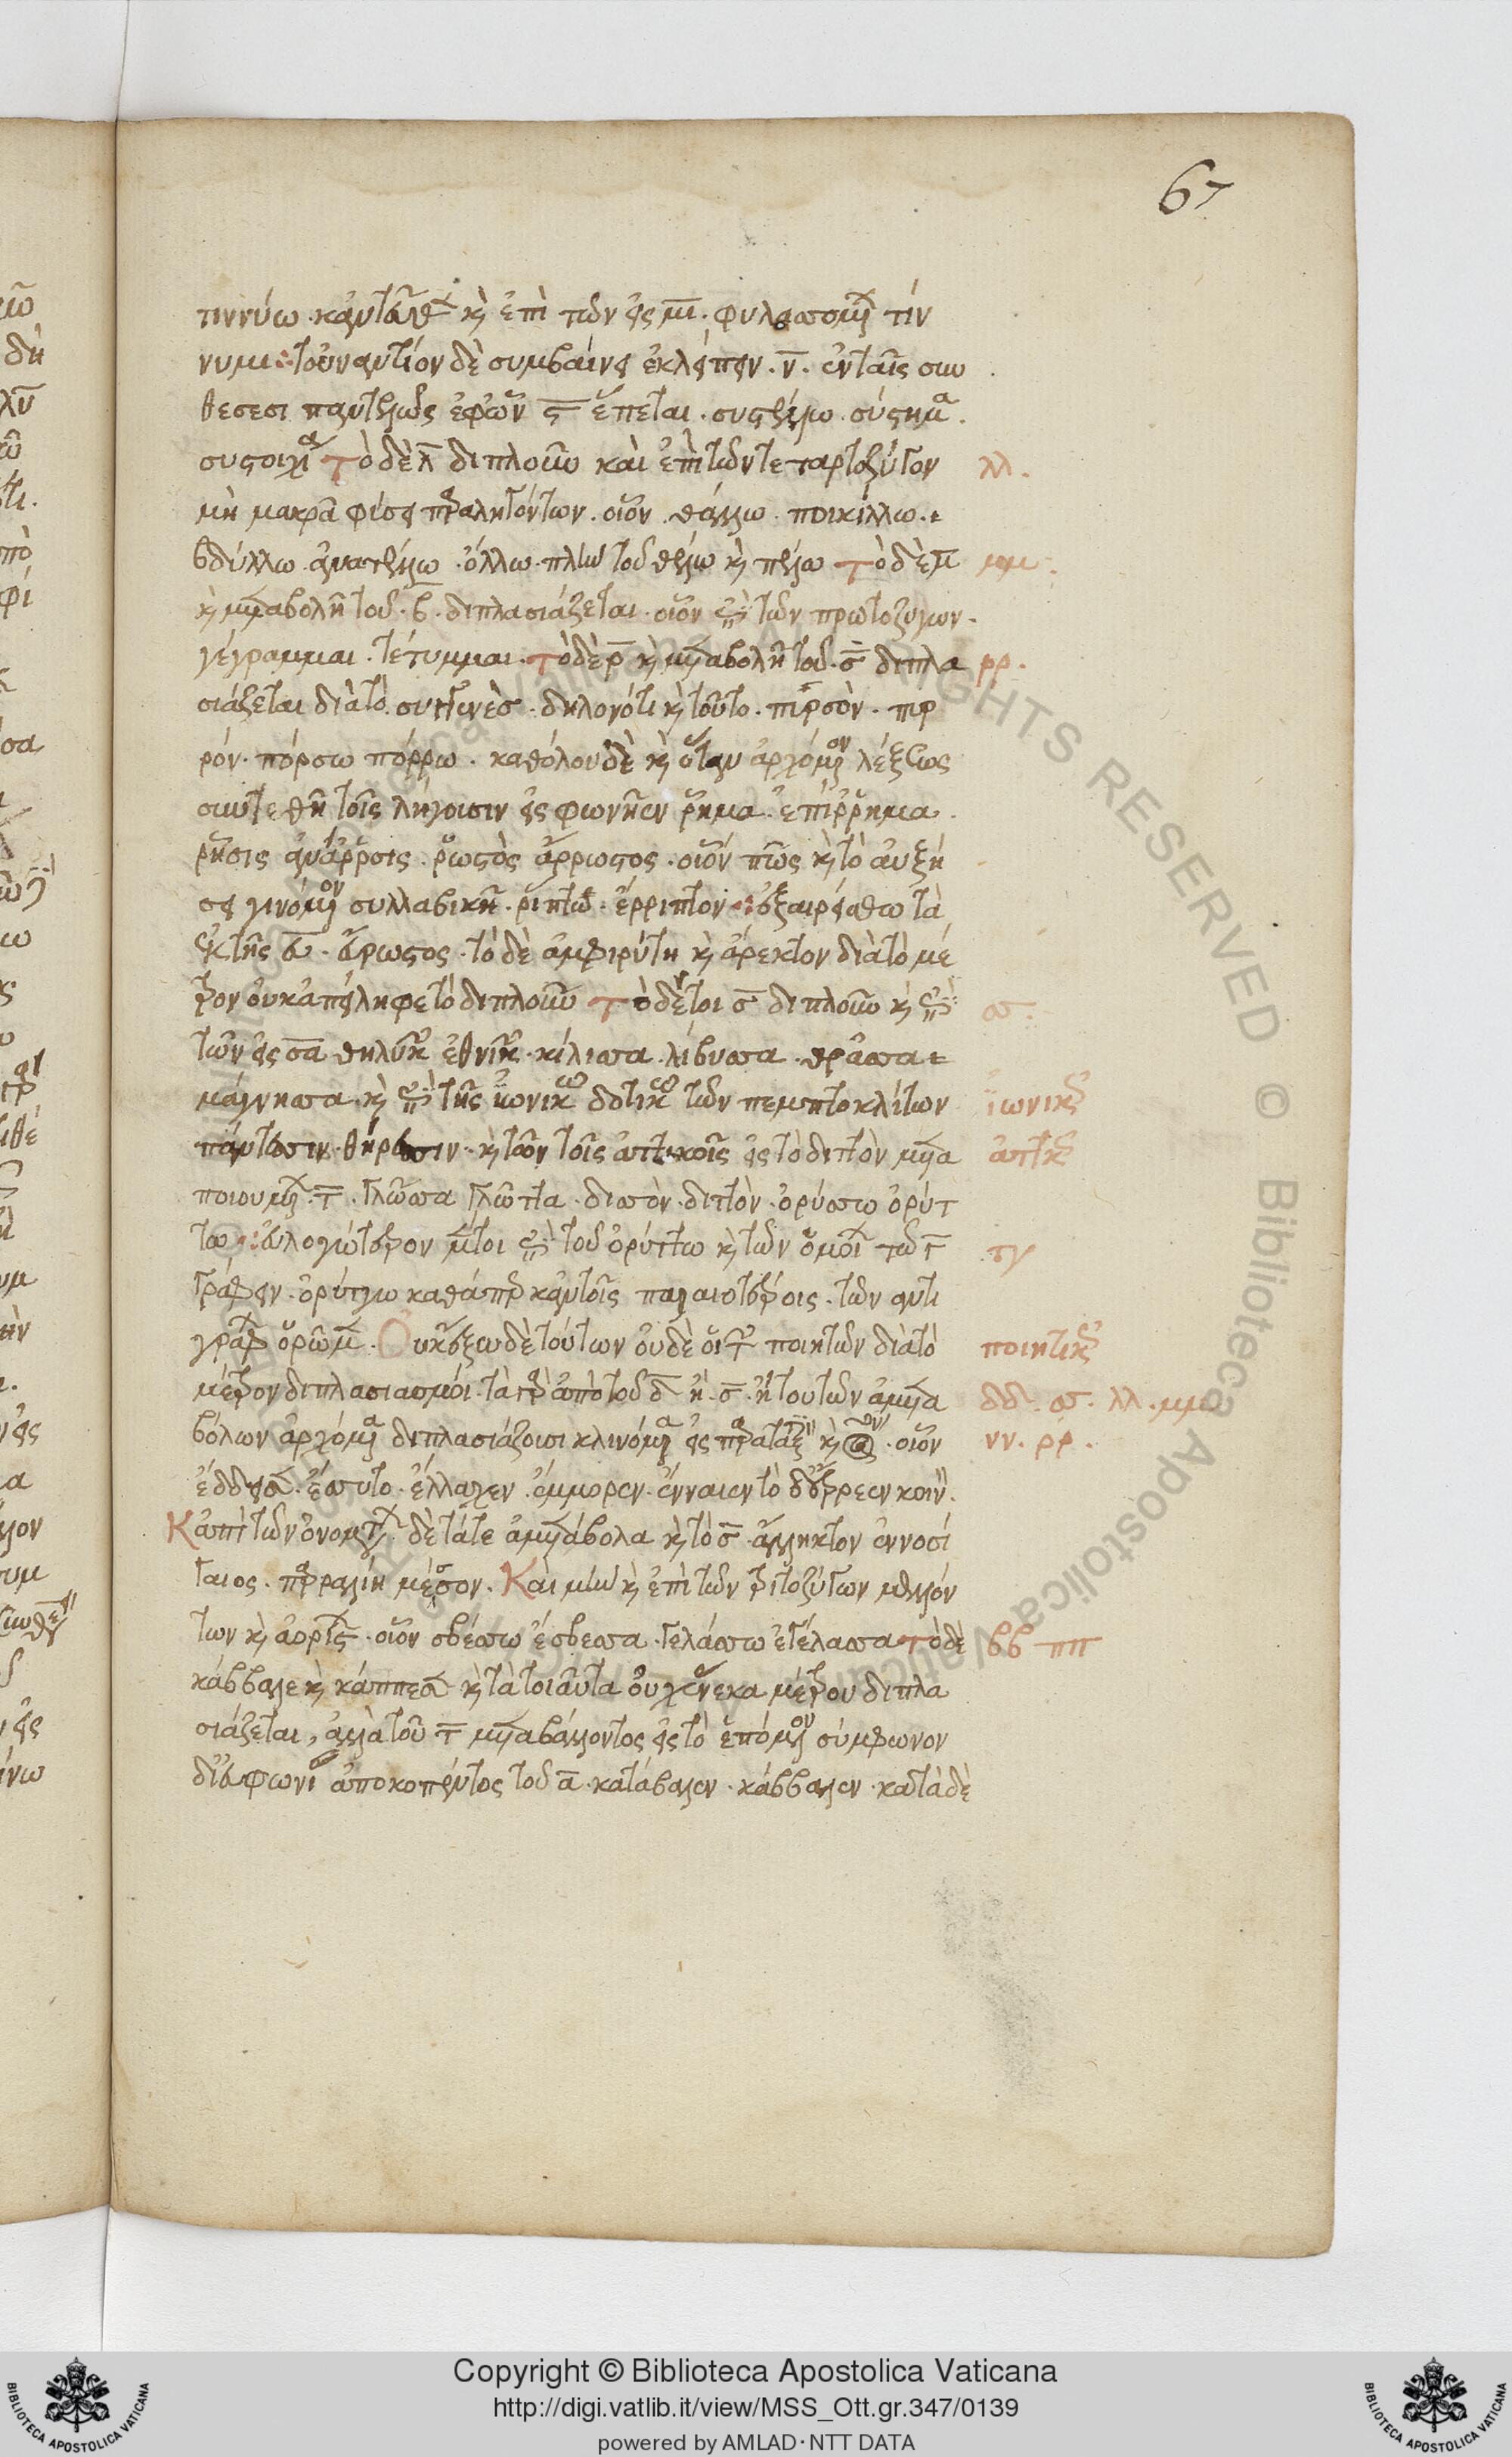 67
τιννύω · κἀνταῦθα καὶ ἐπὶ τῶν εἰς μι · φυλάσσεται τίν
νυμι · τοὐναντίον δὲ συμβαίνει ἐκλείπειν · ν · ἐν ταῖς συν
θέσεσι παντελῶς ἐφ' ὧν σ ἕπεται · συστέλλω · σύστημα ·
συστοιχία το δὲ λ διπλοῦν καὶ ἐπὶ τῶν τεταρτοζύγων
λλ ·
μὴ μακρᾷ φύσει παραληγόντων · οἷον θάλλω · ποικίλλω ·
βδύλλω ἀνατέλλω · ὄλλω · πλὴν τοῦ θέλω καὶ πέλω το δὲ μ
μμ ·
καὶ μεταβολῇ τοῦ · β · διπλασιάζεται · οἷον ἐπὶ τῶν πρωτοζύγων ·
γέγραμμαι · τέτυμμαι · το δὲ ρ καὶ μεταβολῇ τοῦ · σ διπλα
ρρ ·
σιάζεται διὰ τὸ συγγενὲσ · δηλονότι καὶ τοῦτο · πυρσὸν · πυρ
ρόν · πόρσω πόρρω · καθόλου δὲ καὶ ὅταν ἀρχόμενον λέξεως
συντεθῇ τοῖς λήγουσιν εἰς φωνῆεν ῥῆμα · ἐπίρρημα ·
ῥῆσις ἀνάρρησις · ῥωστὸς ἄρρωστος · οἷόν πως καὶ τὸ αὐξή
σει γινόμενον συλλαβικῇ · ῥίπτω · ἔρριπτον · ἐξαιρείσθω τὰ
ἐκ τῆς εὖ · εὔρωστος · τὸ δὲ ἀμφιρύτη καὶ ἄρεκτον διὰ τὸ μέ
τρον οὐκ ἀπείληφε τὸ διπλοῦν το δέτοι σ διπλοῦν καὶ ἐπὶ
σσ ·
τῶν εἰς σα θηλυκῶν ἐθνικῶν · κίλισσα · λίβυσσα · θρᾶσσα
μάγνησσα · καὶ ἐπὶ τῆς ἰωνικῶς δοτικῆς τῶν πεμπτοκλίτων
ἰωνικῶς
πάντεσσιν · θήρεσσιν · καὶ τῶν τοῖς ἀττικοῖς εἰς τὸ διττὸν μετα
ἀττικῶς
ποιουμένων · τ · γλῶσσα γλῶττα · δισσὸν · διττὸν · ὀρύσσω ὀρύτ
τω · εὐλογώτερον μέντοι ἐπὶ τοῦ ὀρύττω καὶ τῶν ὁμοίων τῶ γ
τγ
γράφειν · ὀρύτγω καθάπερ κἀν τοῖς παλαιοτέροις · τῶν ἀντι
γράφων ὁρῶμεν · Οὐκ ἔξω δὲ τούτων οὐδὲ οἱ τῶν ποιητῶν διὰ τὸ
ποιητικῶς
μέτρον διπλασιασμοί · τὰ γὰρ ἀπὸ τοῦ δ ἢ · σ · ἢ του τῶν ἀμετα
δδ · σσ · λλ · μμ
βόλων ἀρχόμενα διπλασιάζουσι κλινόμενα εἰς παρατατικὸν καὶ · οἷον
νν · ρρ ·
ἔδδεισα · ἔσσυτο · ἔλλαχεν · ἔμμορεν · ἔνναιεν τὸ δὲ ἔρρεεν κοινόν ·
Κἀπὶ τῶν ὀνομάτων δὲ τά τε ἀμετάβολα καὶ τὸ σ · ἄλληκτον ἐννοσί
γαιος · παρραλίη μέσσον · Καὶ μὴν καὶ ἐπὶ τῶν τριτοζύγων μελλόν
των καὶ ἀορίστων · οἷον σβέσσω ἔσβεσσα · γελάσσω ἐγέλασσα το δὲ
ββ ππ
κάββαλε καὶ κάππεσε καὶ τὰ τοιαῦτα οὐχ ἕνεκα μέτρου διπλα
σιάζεται, ἀλλὰ τοῦ τ μεταβάλλοντος εἰς τὸ ἑπόμενον σύμφωνον
δι' εὐφωνίαν ἀποκοπέντος τοῦ α · κατάβαλεν · κάββαλεν · κατὰ δὲ
Copyright © Biblioteca Apostolica Vaticana
http://digi.vatlib.it/view/MSS_Ott.gr.347/0139
powered by AMLAD·NTT DATA